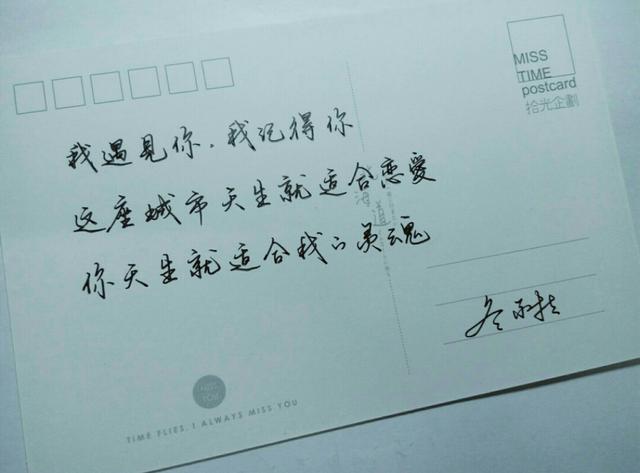 MISS
TIME
postcard
拾光企劃
我遇见你，我记得你
这座城市天生就适合恋爱
你天生就适合我的灵魂
TIME FLIES. I ALWAYS MISS YOU